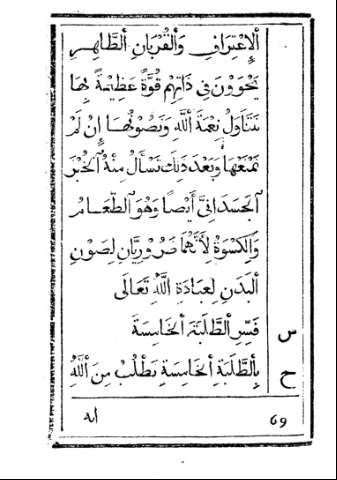 ٱلْإِعْتِرَافِ وَٱلْقُرْبَانِ ٱلطَّاهِرِ
يَحْوُونَ فِي ذَاتِهِم قُوَّةً عَظِيمَةً بِهَا
نَتَنَاوَلُ نِعْمَةَ ٱللَّهِ وَنَصُونُهَا إِنْ لَمْ
نَمْنَعْهَا وَبَعْدَ ذٰلِكَ نَسْأَلُ مِنْهُ ٱلْخُبْزَ
ٱلْجَسَدَانِيَّ أَيْضًا وَهُوَ ٱلطَّعَامُ
وَٱلْكِسْوَةُ لِأَنَّهُمَا ضَرُورِيَّانِ لِصَوْنِ
ٱلْبَدَنِ لِعِبَادَةِ ٱللَّهِ تَعَالَى
س فَسِّرِ ٱلطَّلِبَةَ ٱلْخَامِسَةَ
ج بِٱلطَّلِبَةِ ٱلْخَامِسَةِ نَطْلُبُ مِنَ ٱللَّهِ
٦٩